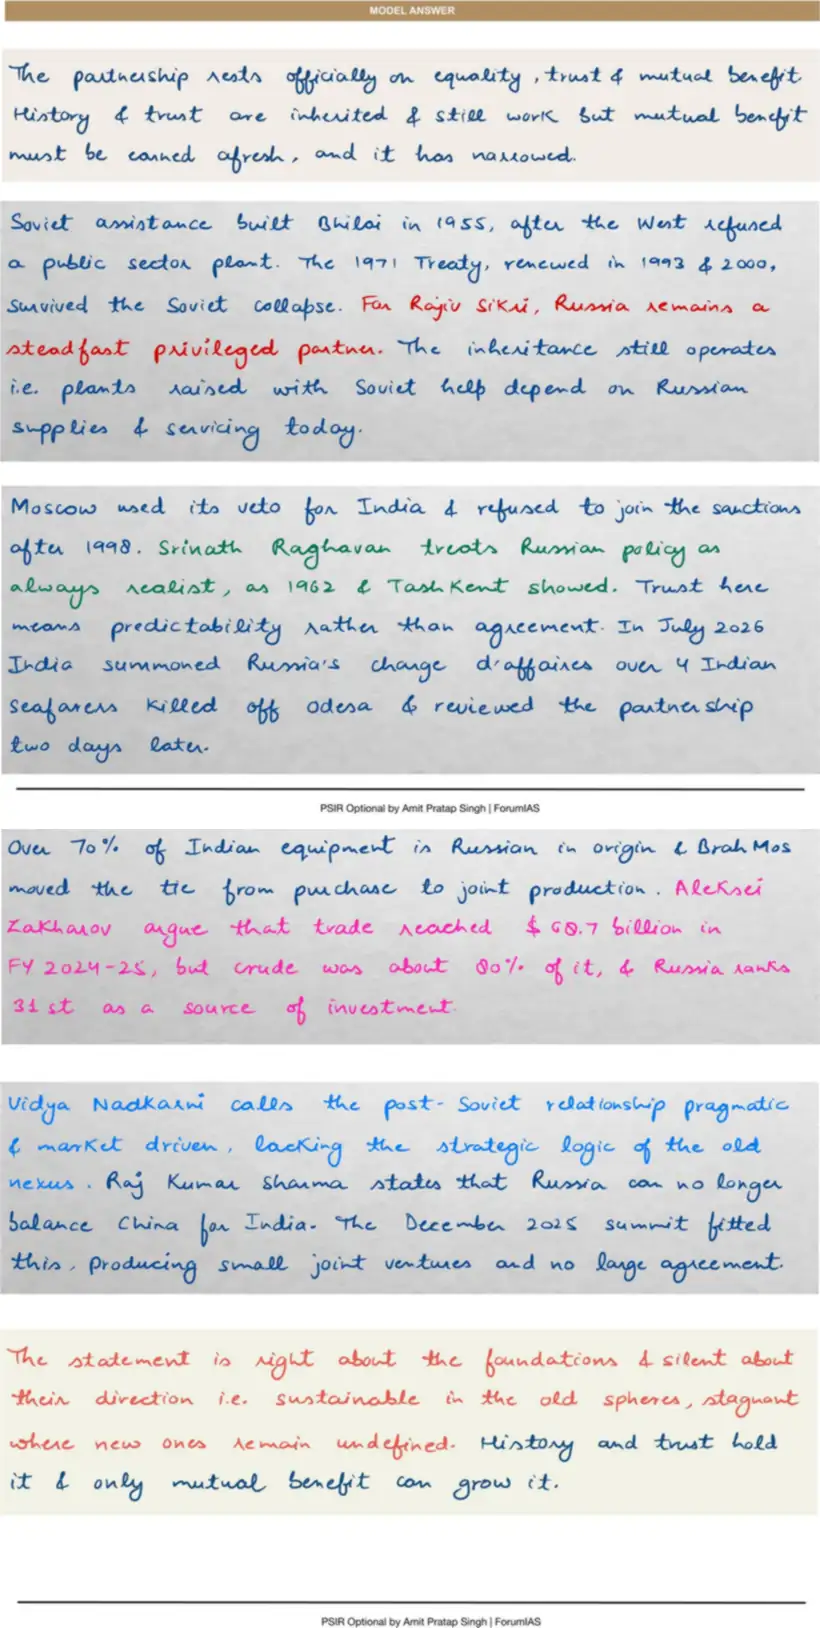 MODEL ANSWER
The partnership rests officially on equality, trust & mutual benefit
History & trust are inherited & still work but mutual benefit
must be earned afresh, and it has narrowed.
Soviet assistance built Bhilai in 1955, after the West refused
a public sector plant. The 1971 Treaty, renewed in 1993 & 2000,
survived the Soviet collapse. For Rajiv Sikri, Russia remains a
steadfast privileged partner. The inheritance still operates
i.e. plants raised with Soviet help depend on Russian
supplies & servicing today.
Moscow used its veto for India & refused to join the sanctions
after 1998. Srinath Raghavan treats Russian policy as
always realist, as 1962 & Tashkent showed. Trust here
means predictability rather than agreement. In July 2026
India summoned Russia's charge d'affaires over 4 Indian
seafarers killed off Odesa & reviewed the partnership
two days later.
PSIR Optional by Amit Pratap Singh | ForumIAS
Over 70% of Indian equipment is Russian in origin & BrahMos
moved the tie from purchase to joint production. Aleksei
Zakharov argue that trade reached $ 68.7 billion in
FY 2024-25, but crude was about 80% of it, & Russia ranks
31st as a source of investment.
Vidya Nadkarni calls the post-Soviet relationship pragmatic
& market driven, lacking the strategic logic of the old
nexus. Raj Kumar Sharma states that Russia can no longer
balance China for India. The December 2025 summit fitted
this, producing small joint ventures and no large agreement.
The statement is right about the foundations & silent about
their direction i.e. sustainable in the old spheres, stagnant
where new ones remain undefined. History and trust hold
it & only mutual benefit can grow it.
PSIR Optional by Amit Pratap Singh | ForumIAS